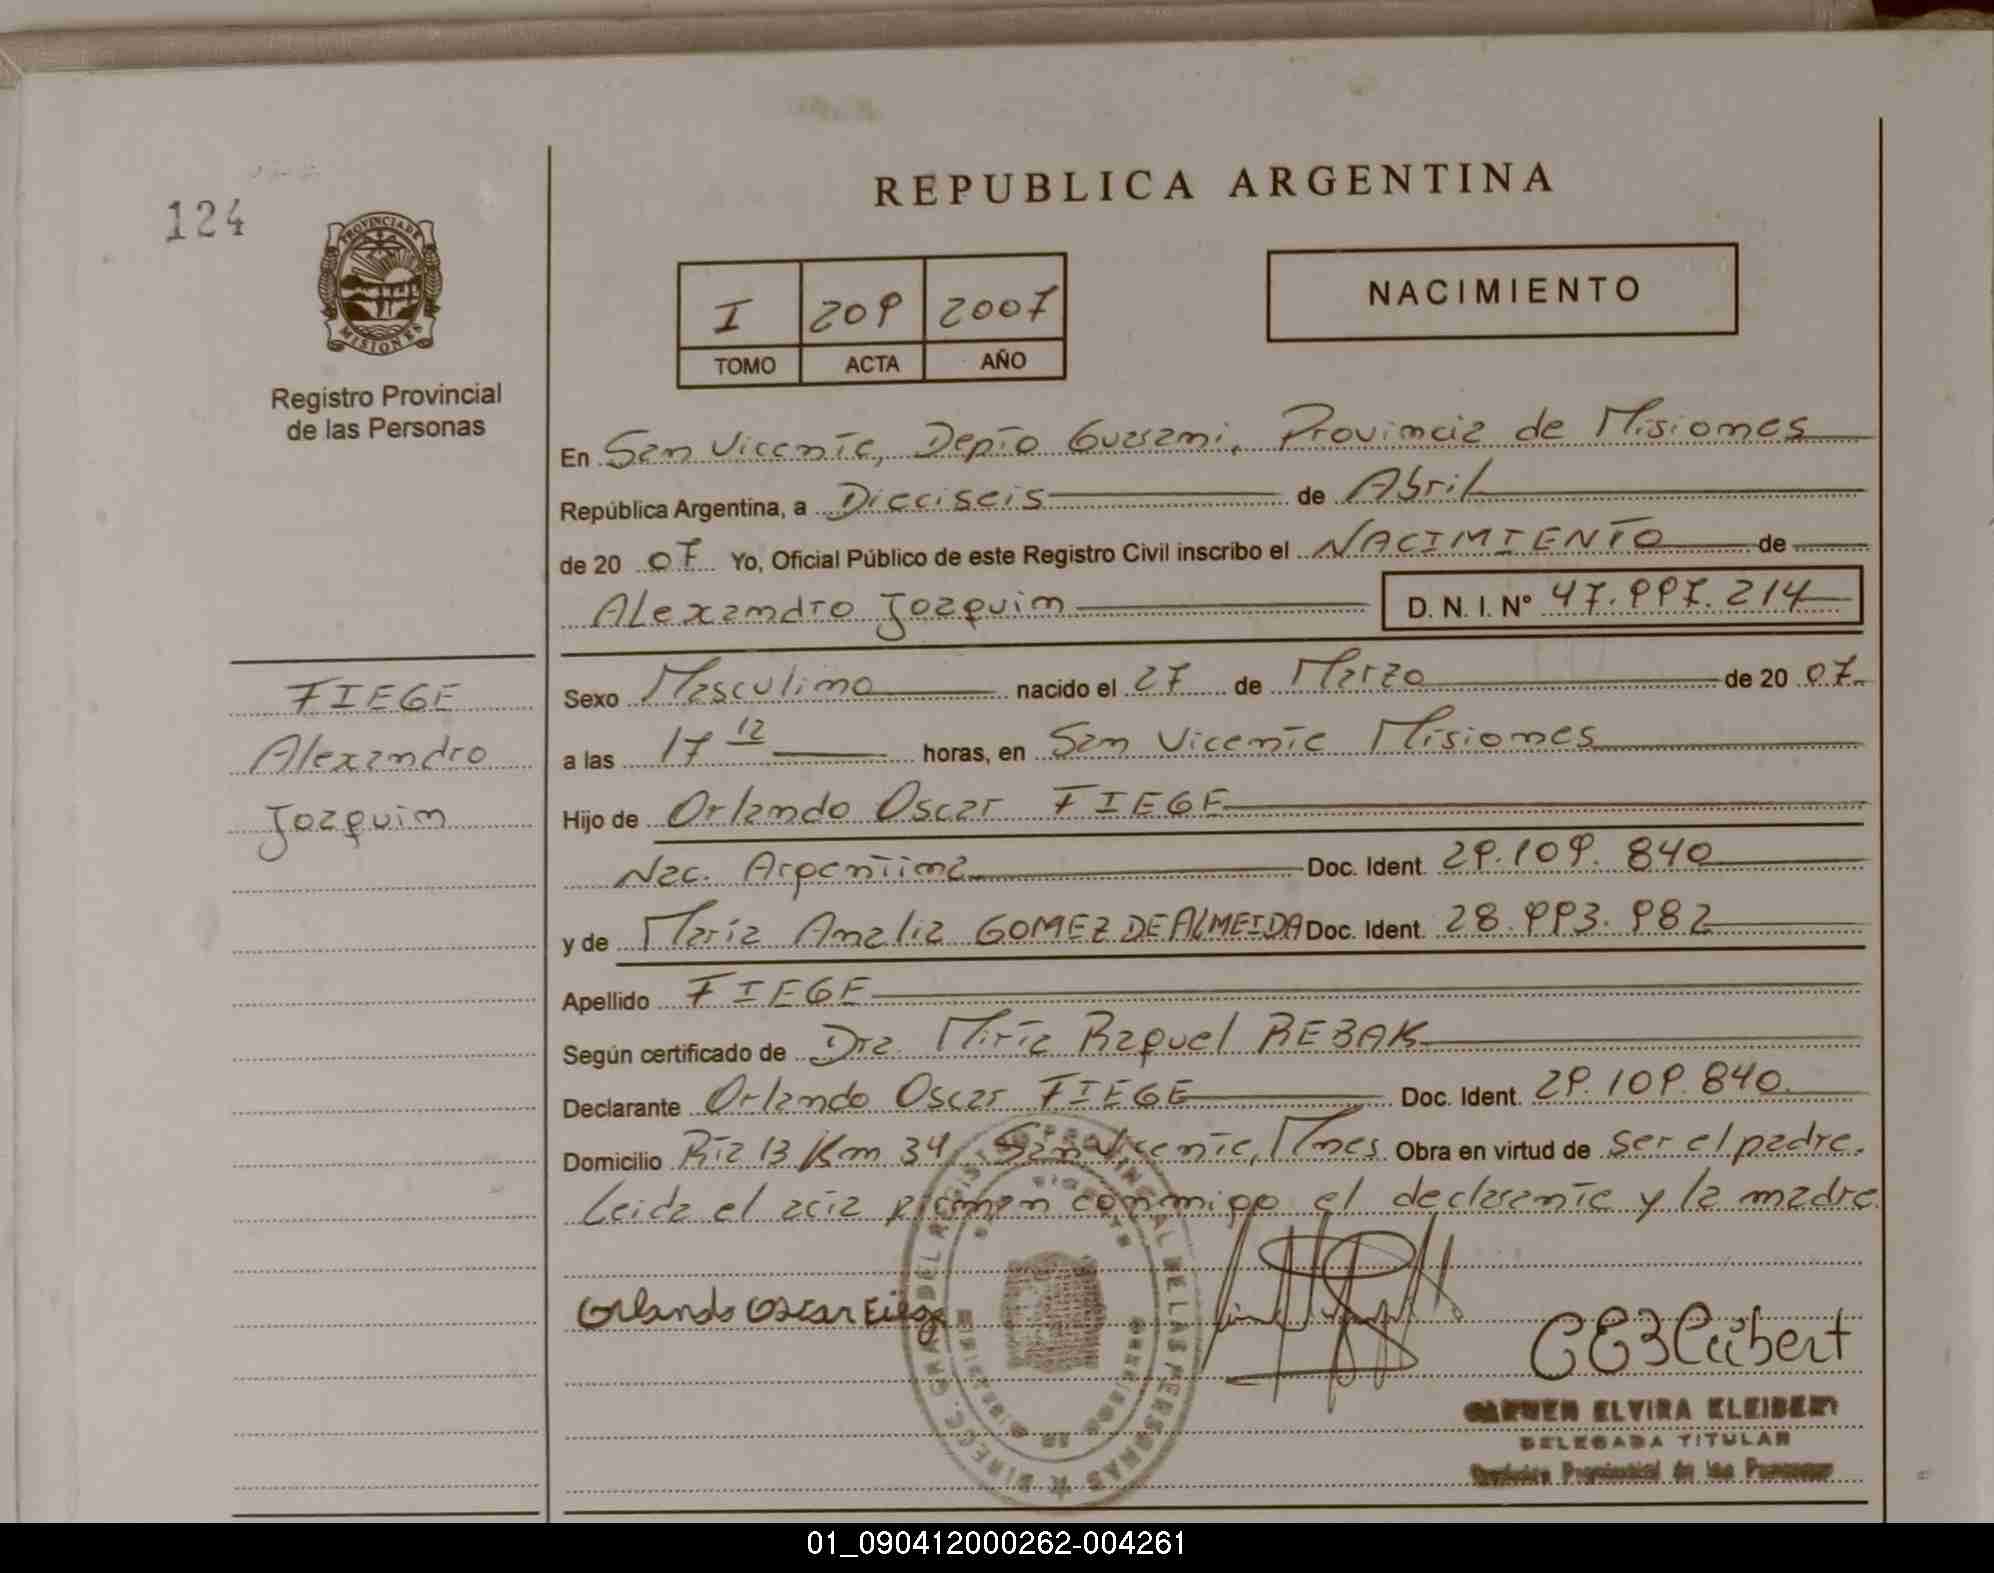 124
PROVINCIA DE
MISIONES
Registro Provincial
de las Personas
REPUBLICA ARGENTINA
I 209 2007
TOMO ACTA AÑO
NACIMIENTO
En San Vicente, Depto Guarani, Provincia de Misiones
República Argentina, a Dieciseis de Abril
de 20 07 Yo, Oficial Público de este Registro Civil inscribo el NACIMIENTO de
Alexandro Joaquim D. N. I. Nº 47.997.214
FIEGE
Alexandro
Joaquim
Sexo Masculino nacido el 27 de Marzo de 20 07
a las 17 12 horas, en San Vicente Misiones
Hijo de Orlando Oscar FIEGE
Nac. Argentina Doc. Ident. 29.109.840
y de María Analia GOMEZ DE ALMEIDA Doc. Ident. 28.993.982
Apellido FIEGE
Según certificado de Dra. Raquel REBAK
Declarante Orlando Oscar FIEGE Doc. Ident. 29.109.840
Domicilio Km 34 San Vicente, Mnes Obra en virtud de ser el padre.
Leida el acta firman conmigo el declarante y la madre
Orlando Oscar
CARMEN ELVIRA KLEIBERT
DELEGADA TITULAR
Provincial de las Personas
DIREC. GRAL. DEL REGISTRO PROVINCIAL DE LAS PERSONAS
01_090412000262-004261